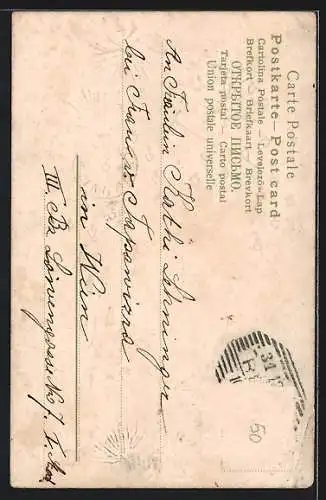 Carte Postale
Postkarte — Post card
Cartolina Postale — Levelező-Lap
Brefkort — Briefkaart — Brevkort
ОТКРЫТОЕ ПИСЬМО.
Tarjeta postal — Carto postal
Union postale universelle
An Fräulein Kathi
bei Frau v.
in Wien
III. Bz. No 7.
50